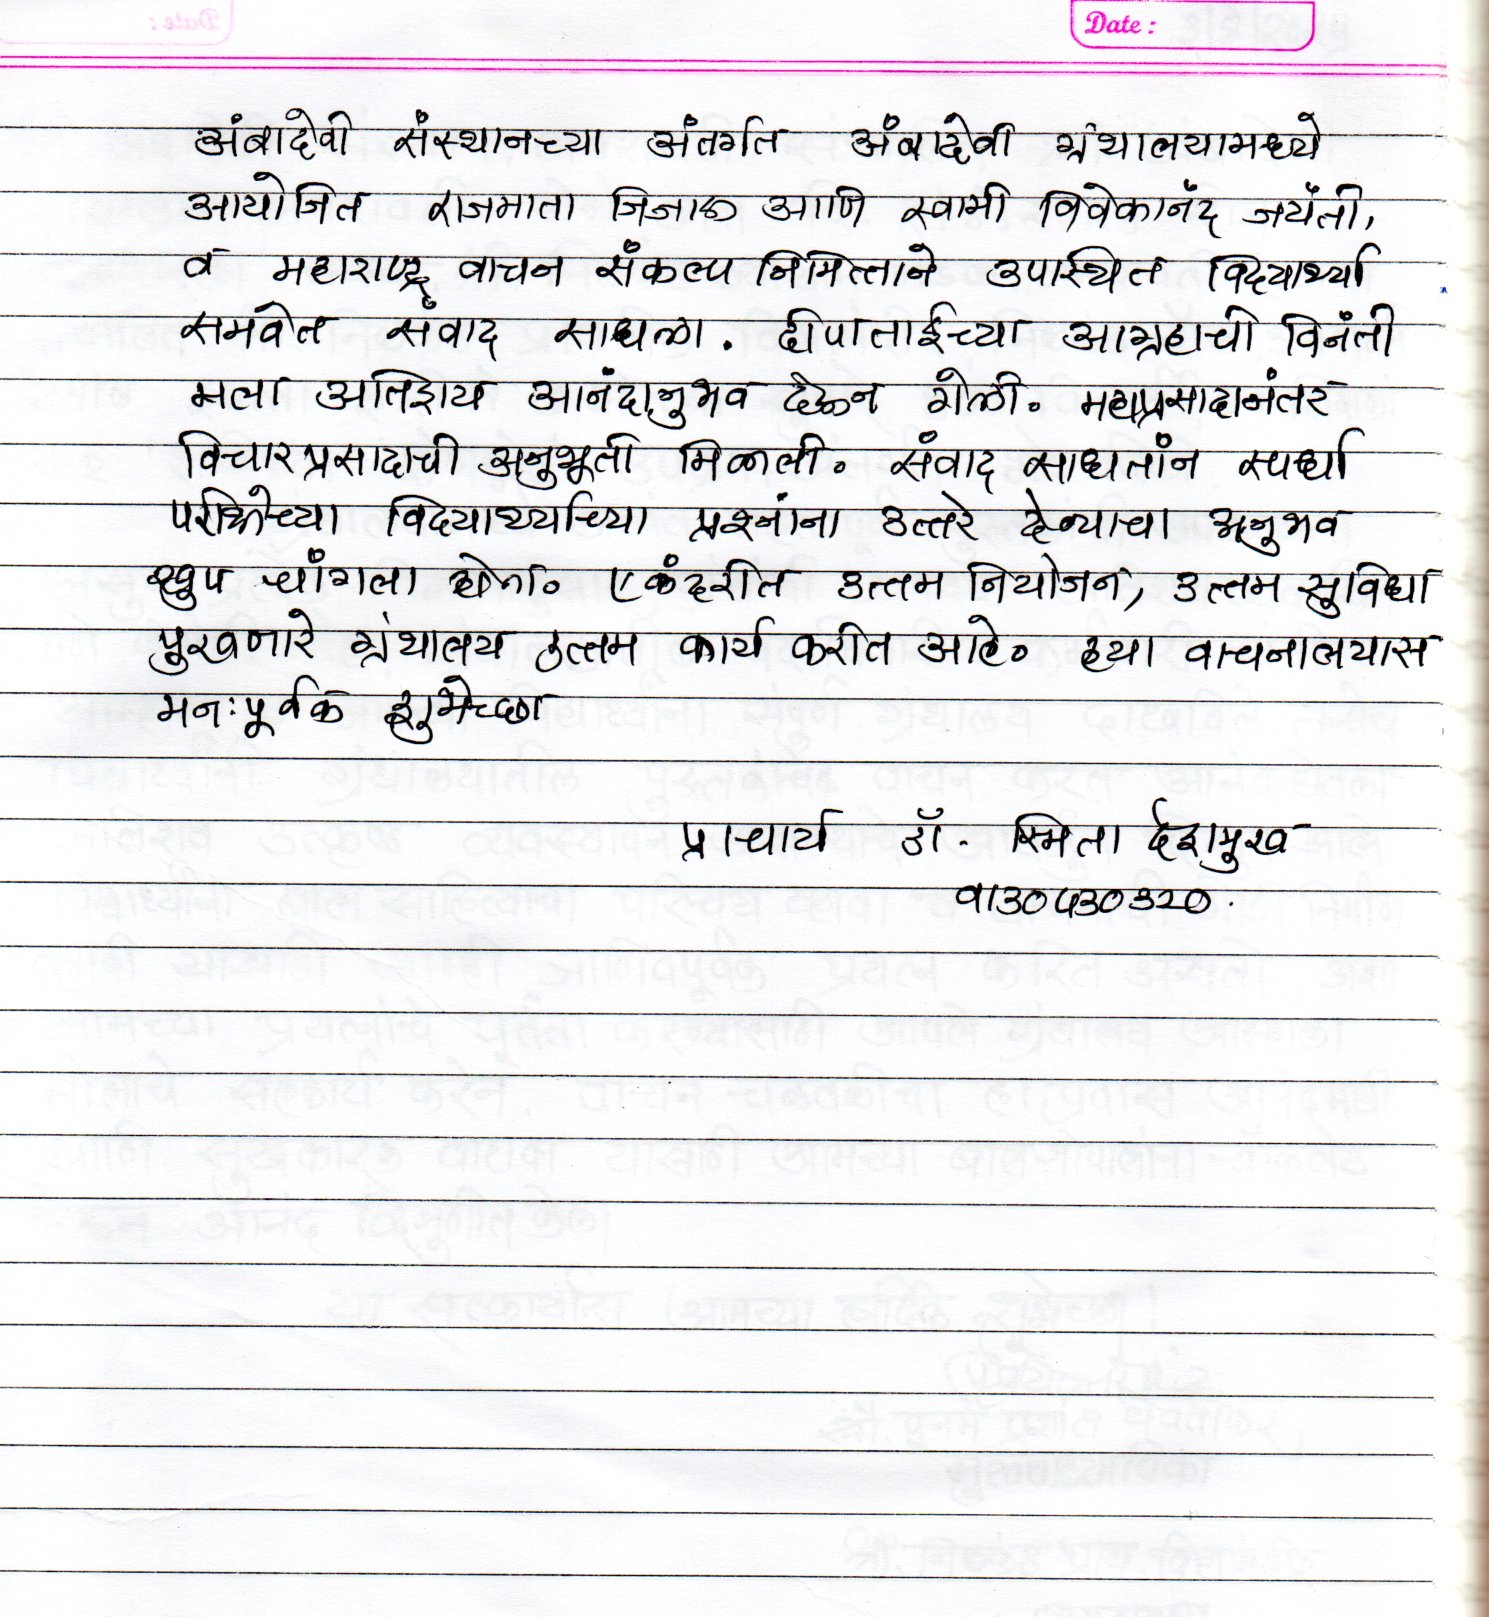 Date :
अंबादेवी संस्थानच्या अंतर्गत अंबादेवी ग्रंथालयामध्ये
आयोजित राजमाता जिजाऊ आणि स्वामी विवेकानंद जयंती,
व महाराष्ट्र वाचन संकल्प निमित्ताने उपस्थित विद्यार्थ्यां
समवेत संवाद साधला. दीपाताईच्या आग्रहाची विनंती
मला अतिशय आनंदानुभव देऊन गेली. महाप्रसादानंतर
विचारप्रसादाची अनुभूती मिळाली. संवाद साधतांन स्पर्धा
परीक्षेच्या विद्यार्थ्यांच्या प्रश्नांना उत्तरे देण्याचा अनुभव
खुप चांगला होता. एकंदरीत उत्तम नियोजन, उत्तम सुविधा
पुरवणारे ग्रंथालय उत्तम कार्य करीत आहे. ह्या वाचनालयास
मनःपूर्वक शुभेच्छा
प्राचार्य डॉ. स्मिता देशमुख